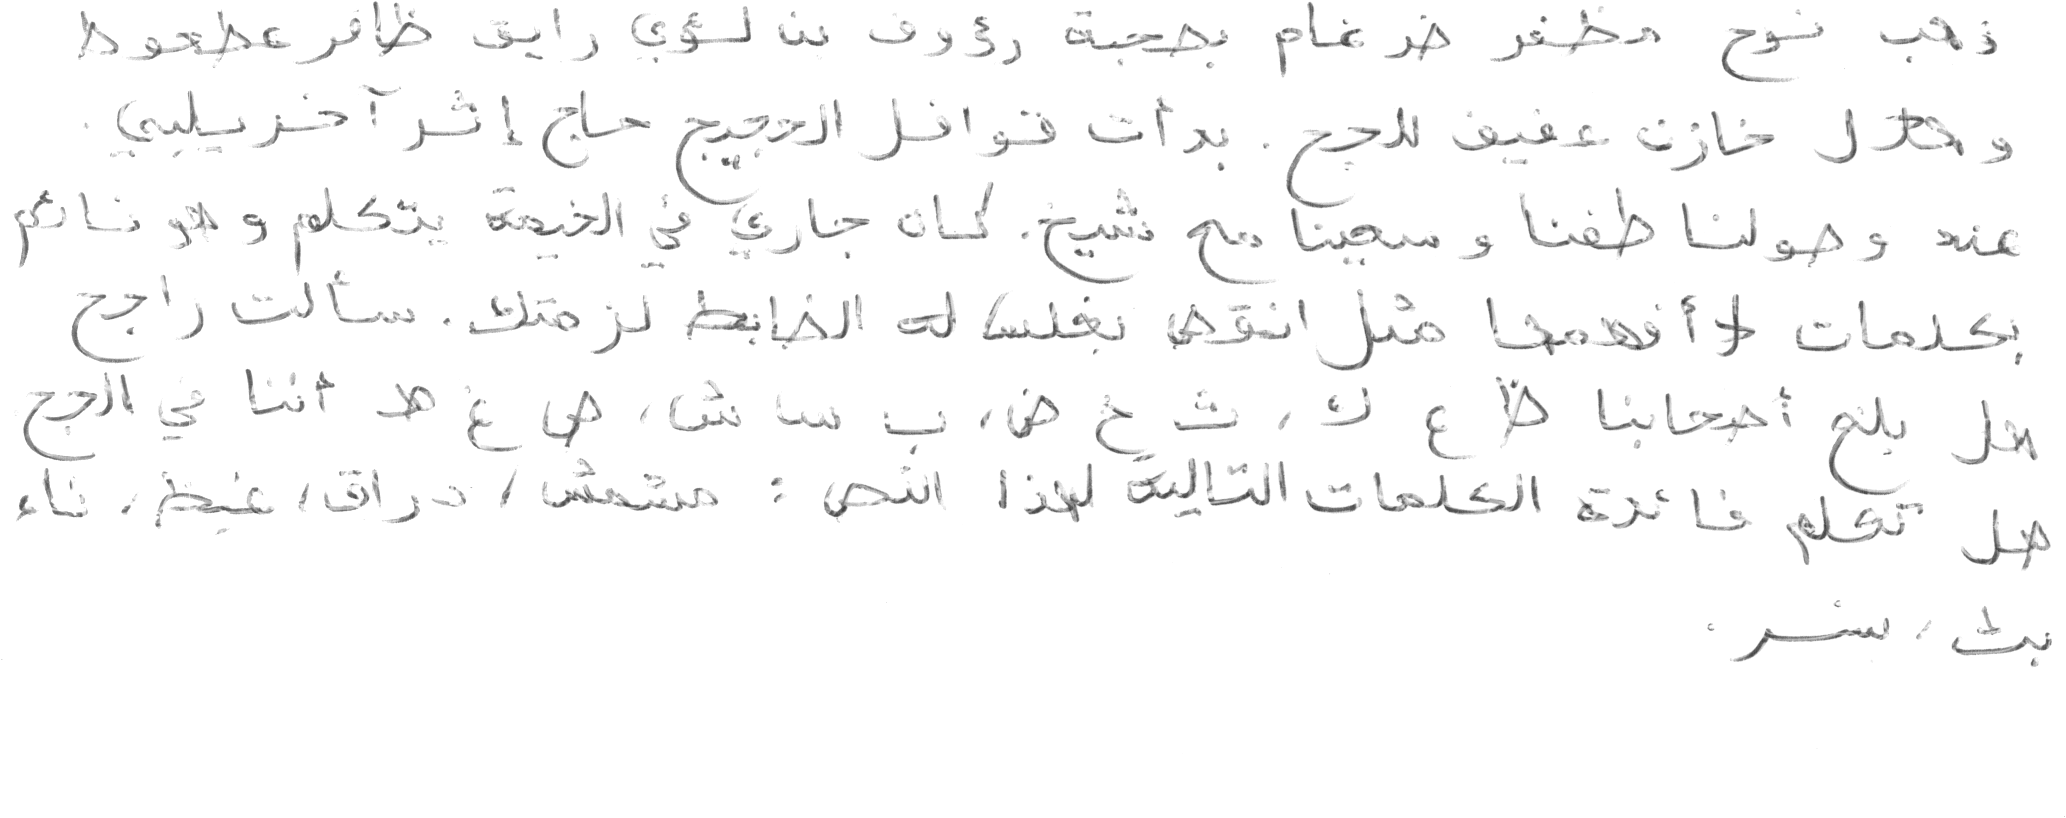 ذهب نوح مظفر ضرغام بصحبة رؤوف بن لؤي رايق ظافر عطعوط
وهلال خازن عفيف للحج. بدأت قوافل الحجيج حاج إثر آخر يلبي.
عند وصولنا طفنا وسعينا مع شيخ. كان جاري في الخيمة يتكلم وهو نائم
بكلمات لا أفهمها مثل انقض بغلس له الضابط لزمتك. سألت راجح
هل بلغ أصحابنا ظ ع ك، ث خ ض، ب س ش، ص غ ط أننا في الحج
هل تعلم فائدة الكلمات التالية لهذا النص: مشمش، دراق، غيظ، ناء
بث، نسر.